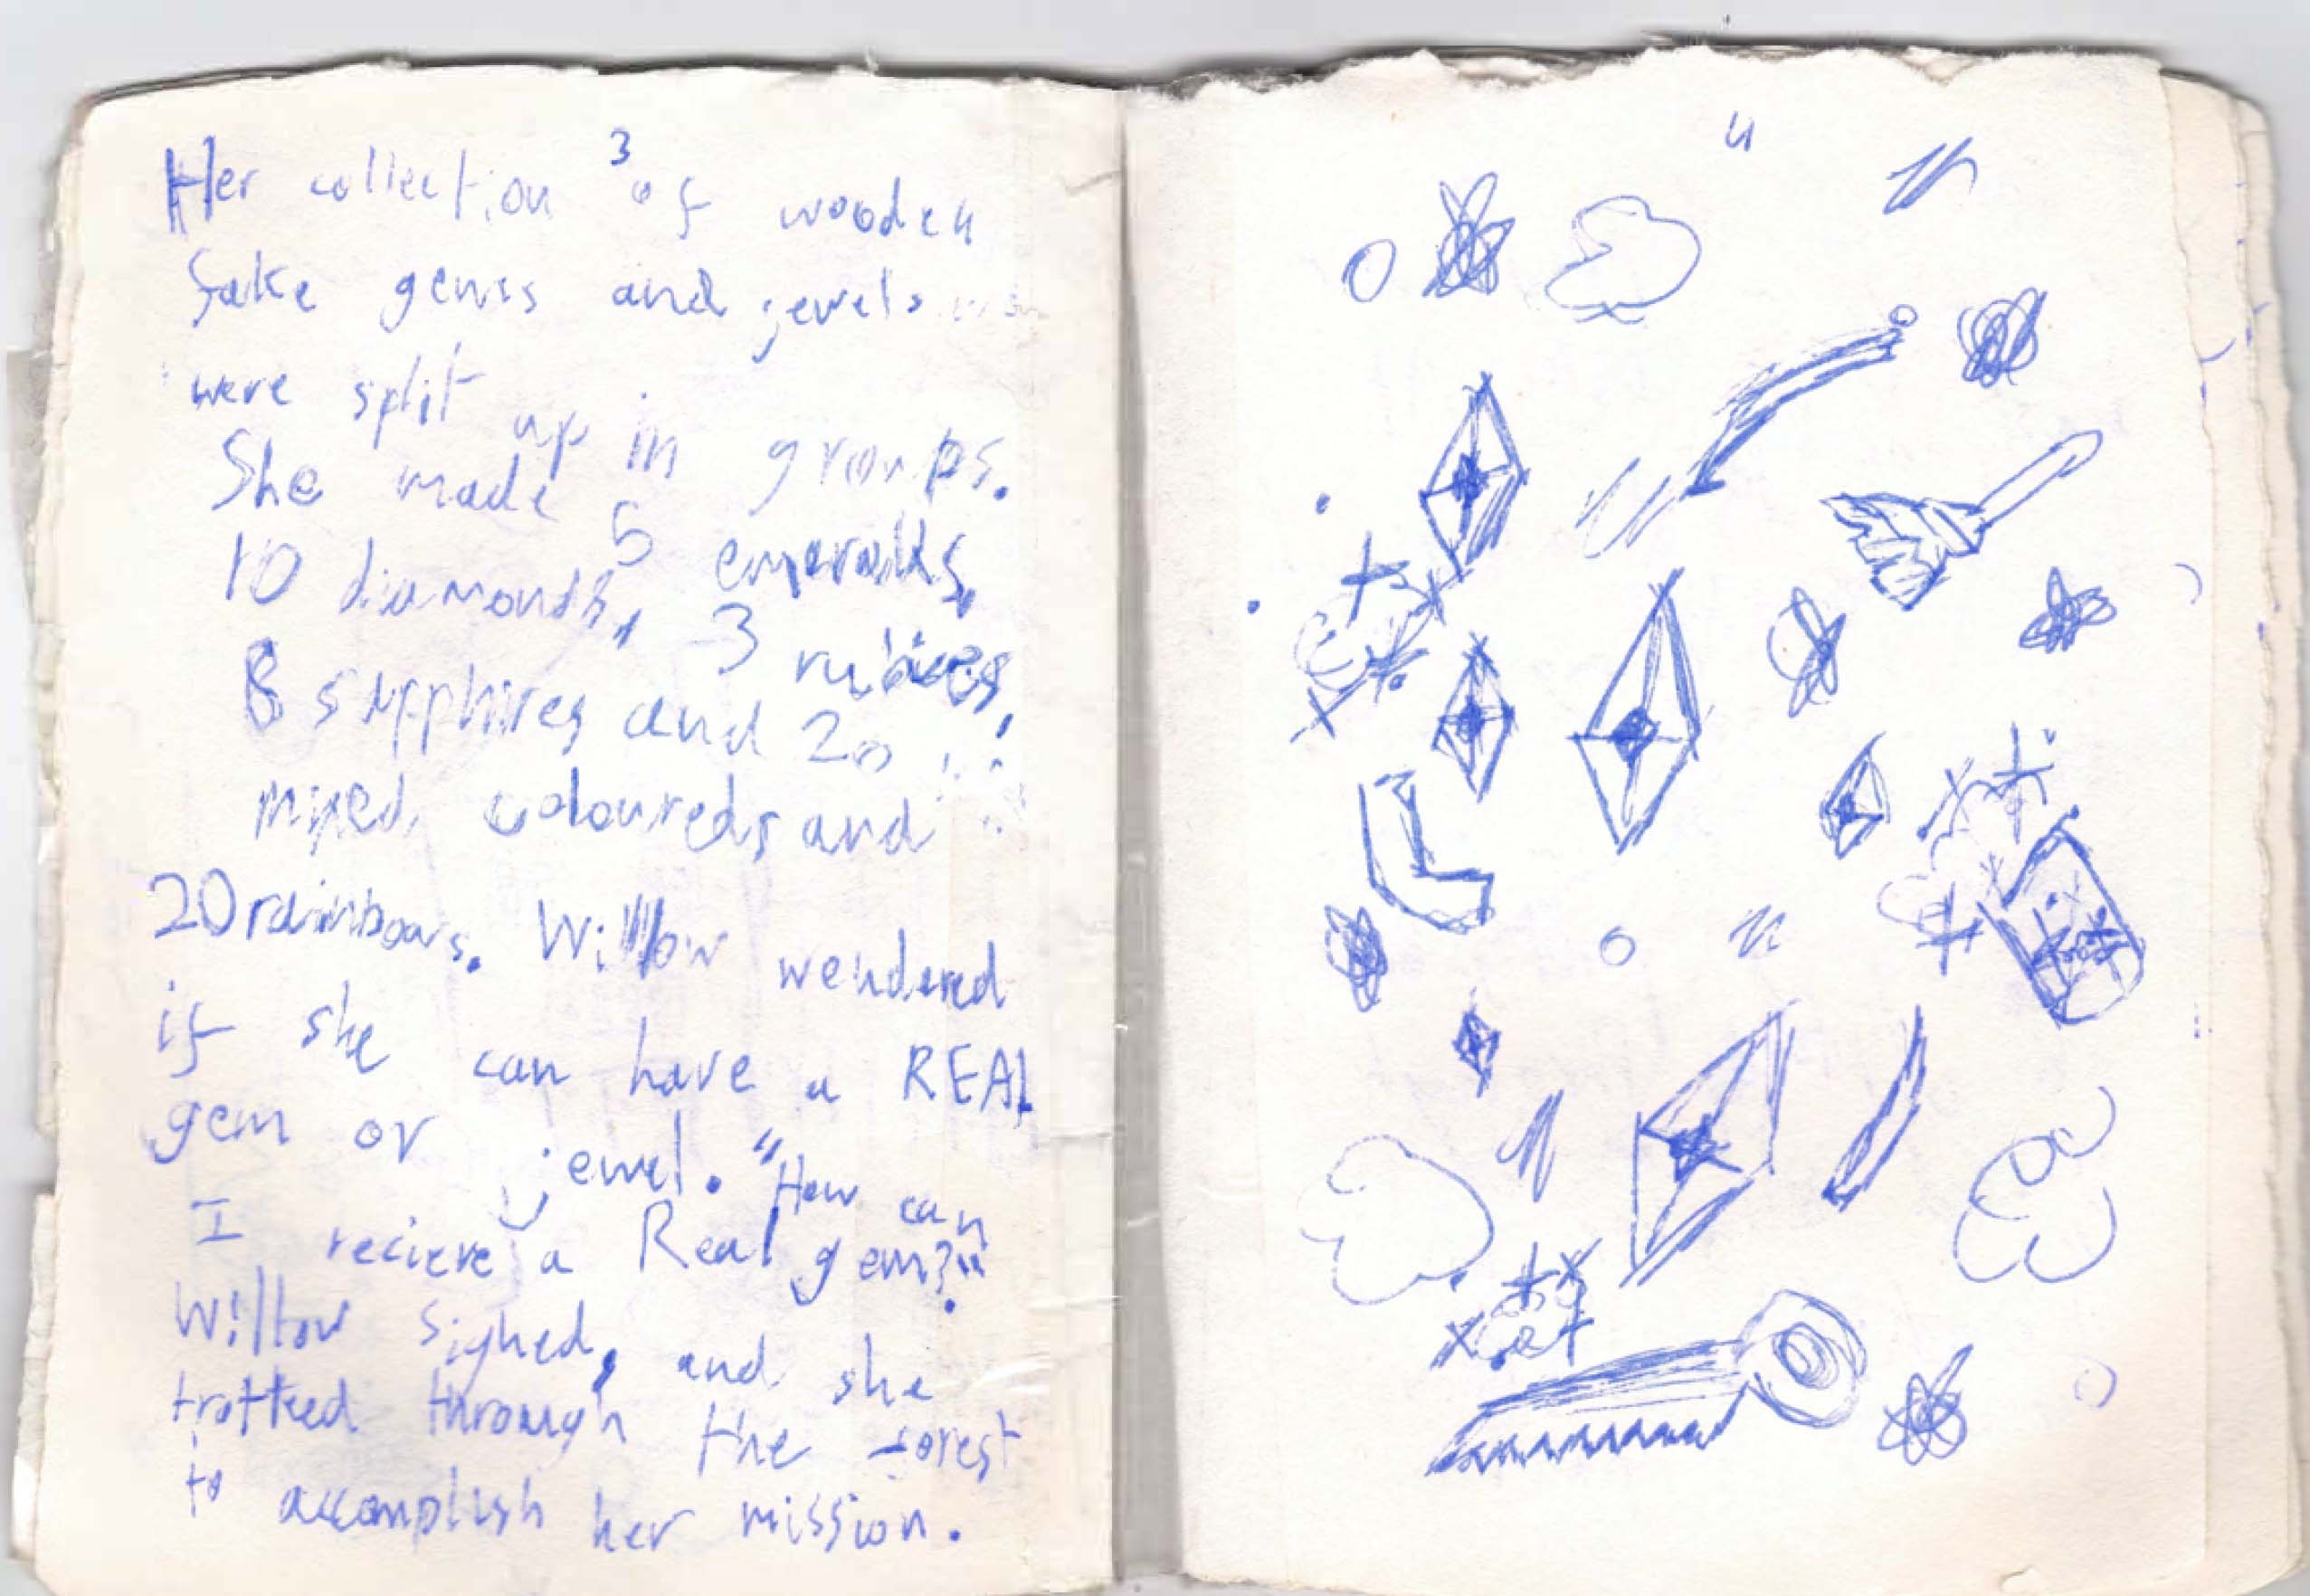 3
Her collection of wooden
fake gems and jewels
were split up in groups.
She made 5 emeralds,
10 diamonds, 3 rubies,
8 sapphires and 20
mixed coloureds and
20 rainbows. Willow wendered
if she can have a REAL
gem or jewel. "How can
I recieve a Real gem?"
Willow sighed, and she
trotted through the forest
to accomplish her mission.
4